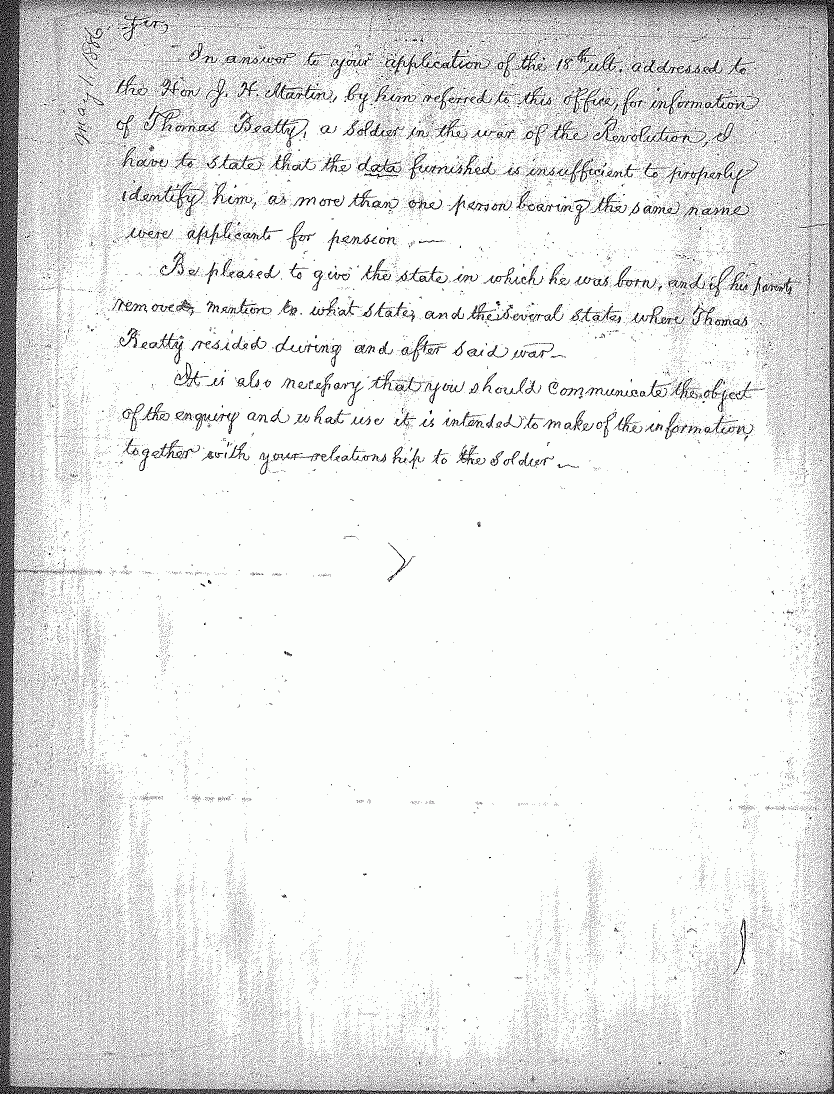 May 11, 1886
Sir,
In answer to your application of the 18th ult. addressed to
the Hon J. H. Martin, by him referred to this office, for information
of Thomas Beatty, a soldier in the war of the Revolution, I
have to state that the data furnished is insufficient to properly
identify him, as more than one person bearing the same name
were applicants for pension. —
Be pleased to give the state in which he was born, and if his parents
removed, mention to what state, and the several states where Thomas
Beatty resided during and after said war —
It is also necessary that you should communicate the object
of the enquiry and what use it is intended to make of the information,
together with your releationship to the Soldier —